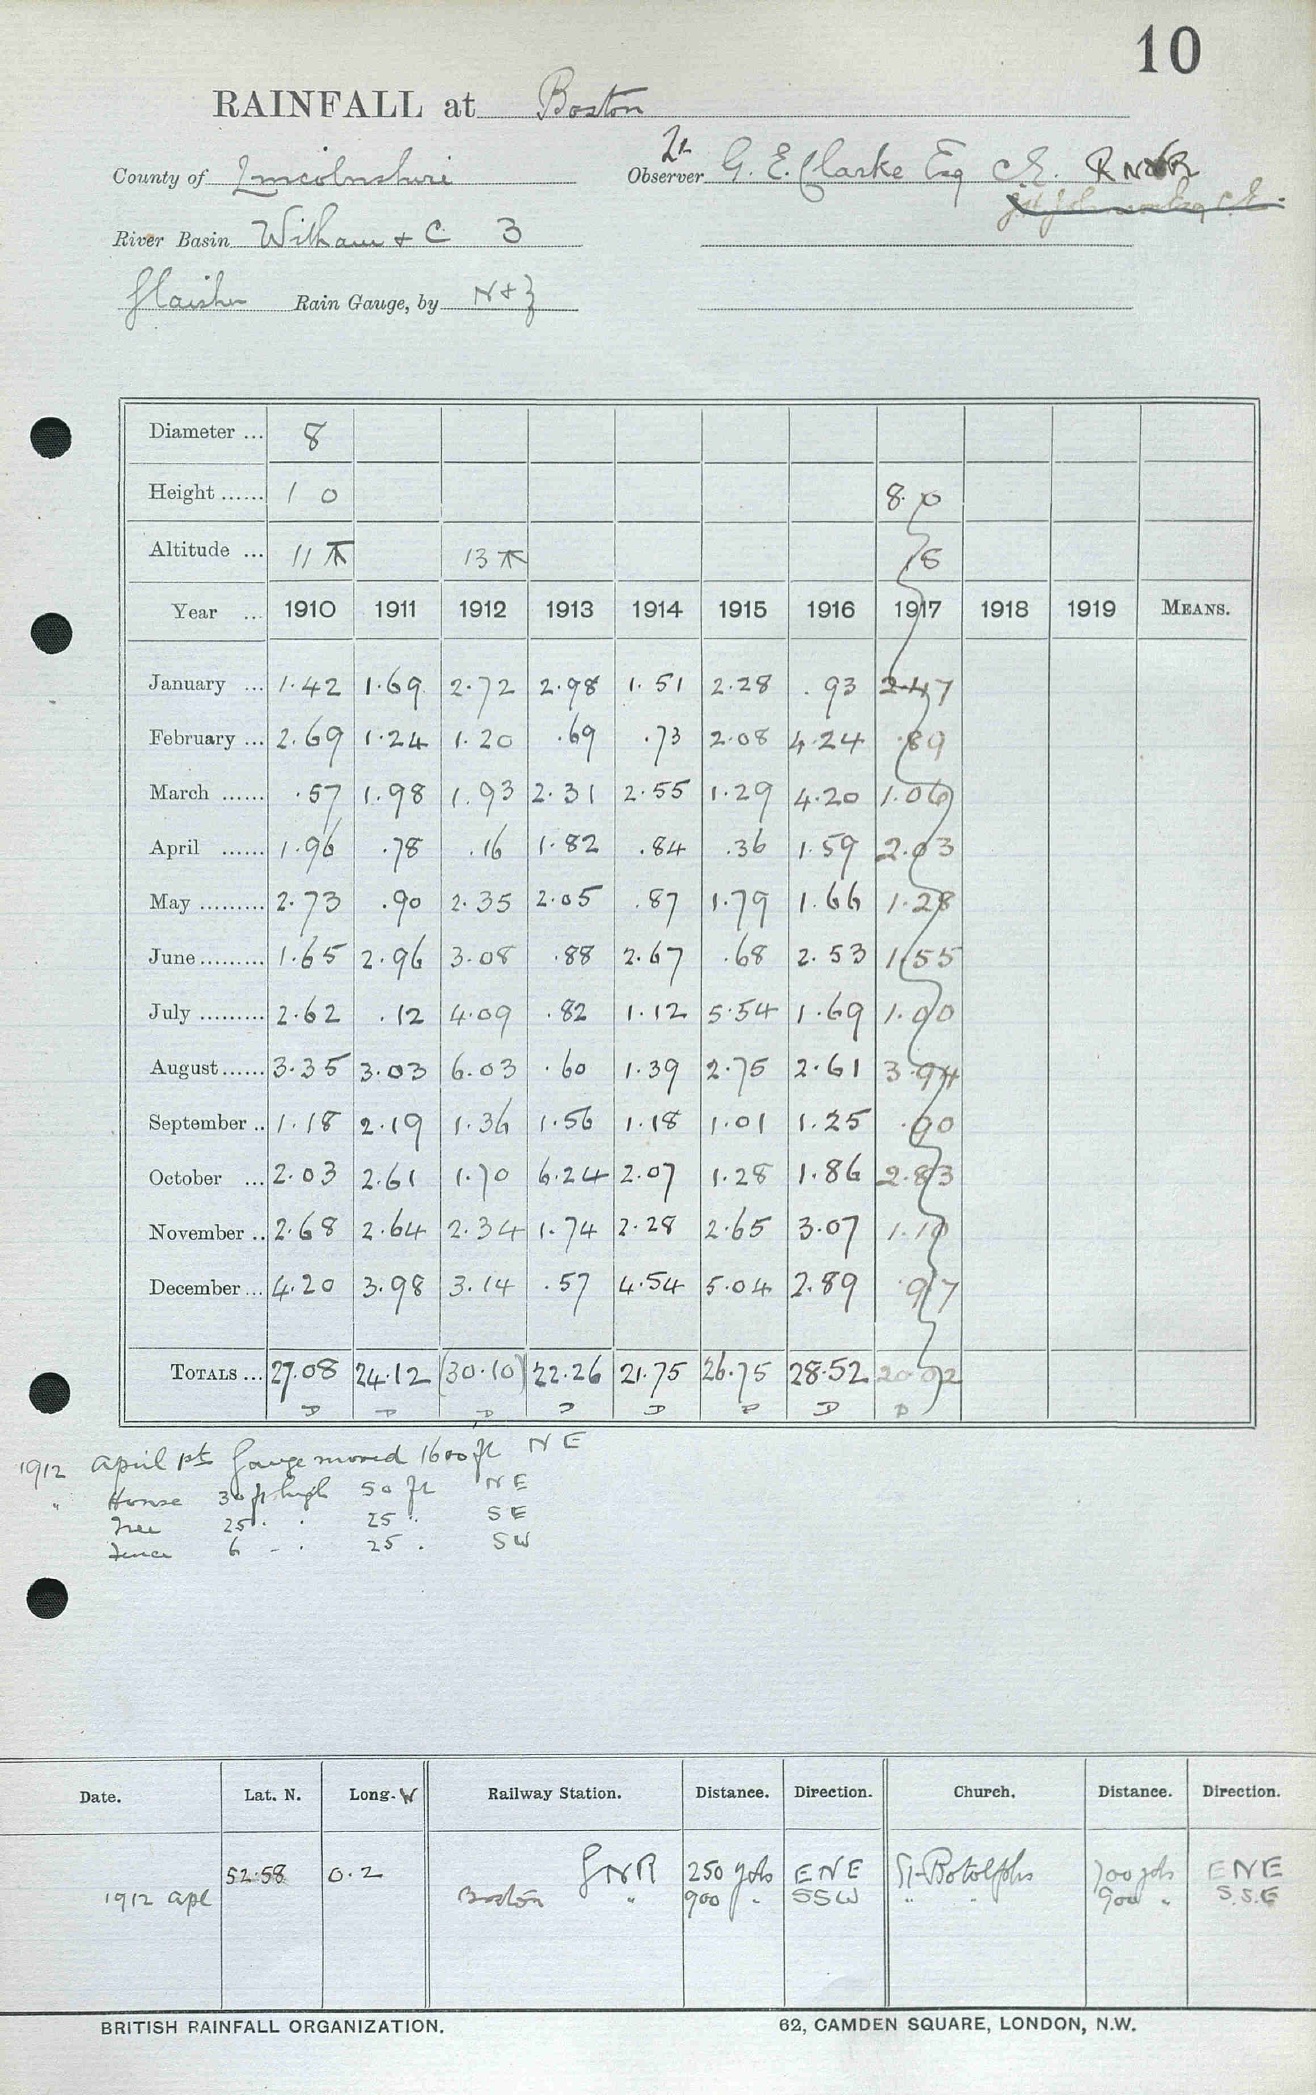 10
RAINFALL at Boston
County of Lincolnshire Observer G. E. Clarke Esq C.E.
River Basin Witham & C 3
Glaisher Rain Gauge, by N & Z
Diameter ... 8
Height ...... 1 0 8. 0
Altitude ... 11 13 8
Year ... 1910 1911 1912 1913 1914 1915 1916 1917 1918 1919 MEANS.
January ... 1.42 1.69 2.72 2.98 1.51 2.28 .93 2.47
February ... 2.69 1.24 1.20 .69 .73 2.08 4.24 .89
March ...... .57 1.98 1.93 2.31 2.55 1.29 4.20 1.06
April ...... 1.96 .78 .16 1.82 .84 .36 1.59 2.03
May ......... 2.73 .90 2.35 2.05 .87 1.79 1.66 1.28
June ......... 1.65 2.96 3.08 .88 2.67 .68 2.53 1.55
July ......... 2.62 .12 4.09 .82 1.12 5.54 1.69 1.00
August ...... 3.35 3.03 6.03 .60 1.39 2.75 2.61 3.94
September .. 1.18 2.19 1.36 1.56 1.18 1.01 1.25 .90
October ... 2.03 2.61 1.70 6.24 2.07 1.28 1.86 2.83
November .. 2.68 2.64 2.34 1.74 2.28 2.65 3.07 1.10
December ... 4.20 3.98 3.14 .57 4.54 5.04 2.89 .97
TOTALS ... 27.08 24.12 (30.10) 22.26 21.75 26.75 28.52 20.02
D D D D D D D D
1912 April 1st Gauge moved 1600 ft NE
" House 30 ft high 50 ft NE
Tree 25 " " 25 " SE
Fence 6 " " 25 " SW
Date. Lat. N. Long. W Railway Station. Distance. Direction. Church. Distance. Direction.
52.58 0.2 GNR 250 yds ENE St Botolphs 700 yds ENE
1912 Apl Boston " 900 " SSW " " 900 " S.S.E
BRITISH RAINFALL ORGANIZATION. 62, CAMDEN SQUARE, LONDON, N.W.